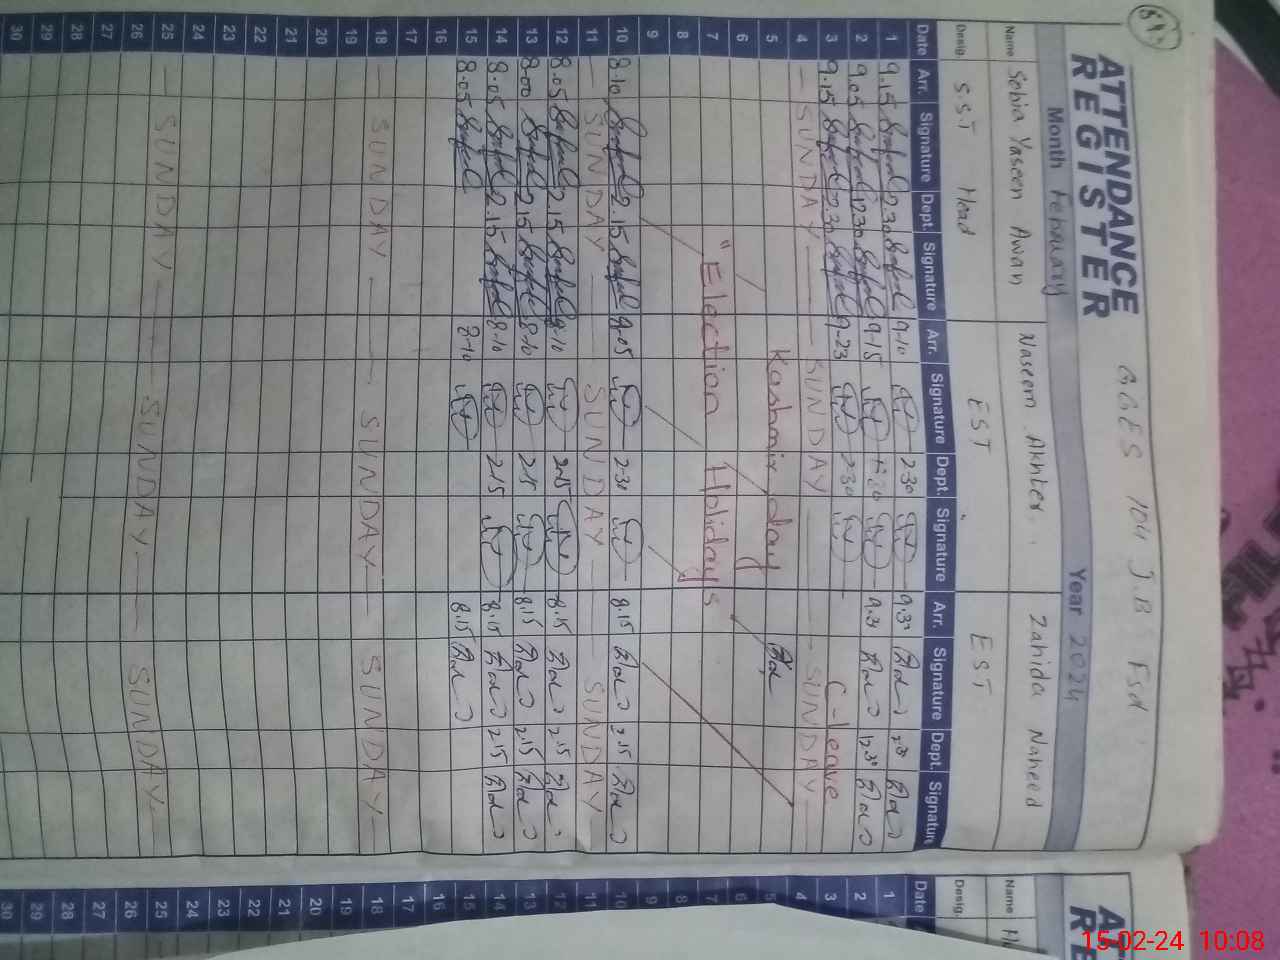 ATTENDANCE REGISTER GGES 104 J.B Fsd
Month February Year 2024
Name Sobia Yaseen Awan Naseem Akhter Zahida Naheed
Desig. SST Head EST EST
Date Arr. Signature Dept. Signature Arr. Signature Dept. Signature Arr. Signature Dept. Signature
1 9.15 2.30 9.10 2.30 9.30 2.30
2 9.05 12.30 9.15 12.30 9.30 12.30
3 9.15 2.30 9.23 2.30 C-leave
4 SUNDAY SUNDAY SUNDAY
5 Kashmir day
6
7 "Election Holidays
8
9
10 8.10 2.15 9.05 2.30 8.15 2.15
11 SUNDAY SUNDAY SUNDAY
12 8.05 2.15 8.10 2.15 8.15 2.15
13 8.00 2.15 8.10 2.15 8.15 2.15
14 8.05 2.15 8.10 2.15 8.15 2.15
15 8.05 8.10 8.15
16
17
18 SUNDAY SUNDAY SUNDAY
19
20
21
22
23
24
25 SUNDAY SUNDAY SUNDAY
26
27
28
29
30
Name
Desig.
Date
1
2
3
4
5
6
7
8
9
10
11
12
13
14
15
16
17
18
19
20
21
22
23
24
25
26
27
28
29
30
15-02-24 10:08